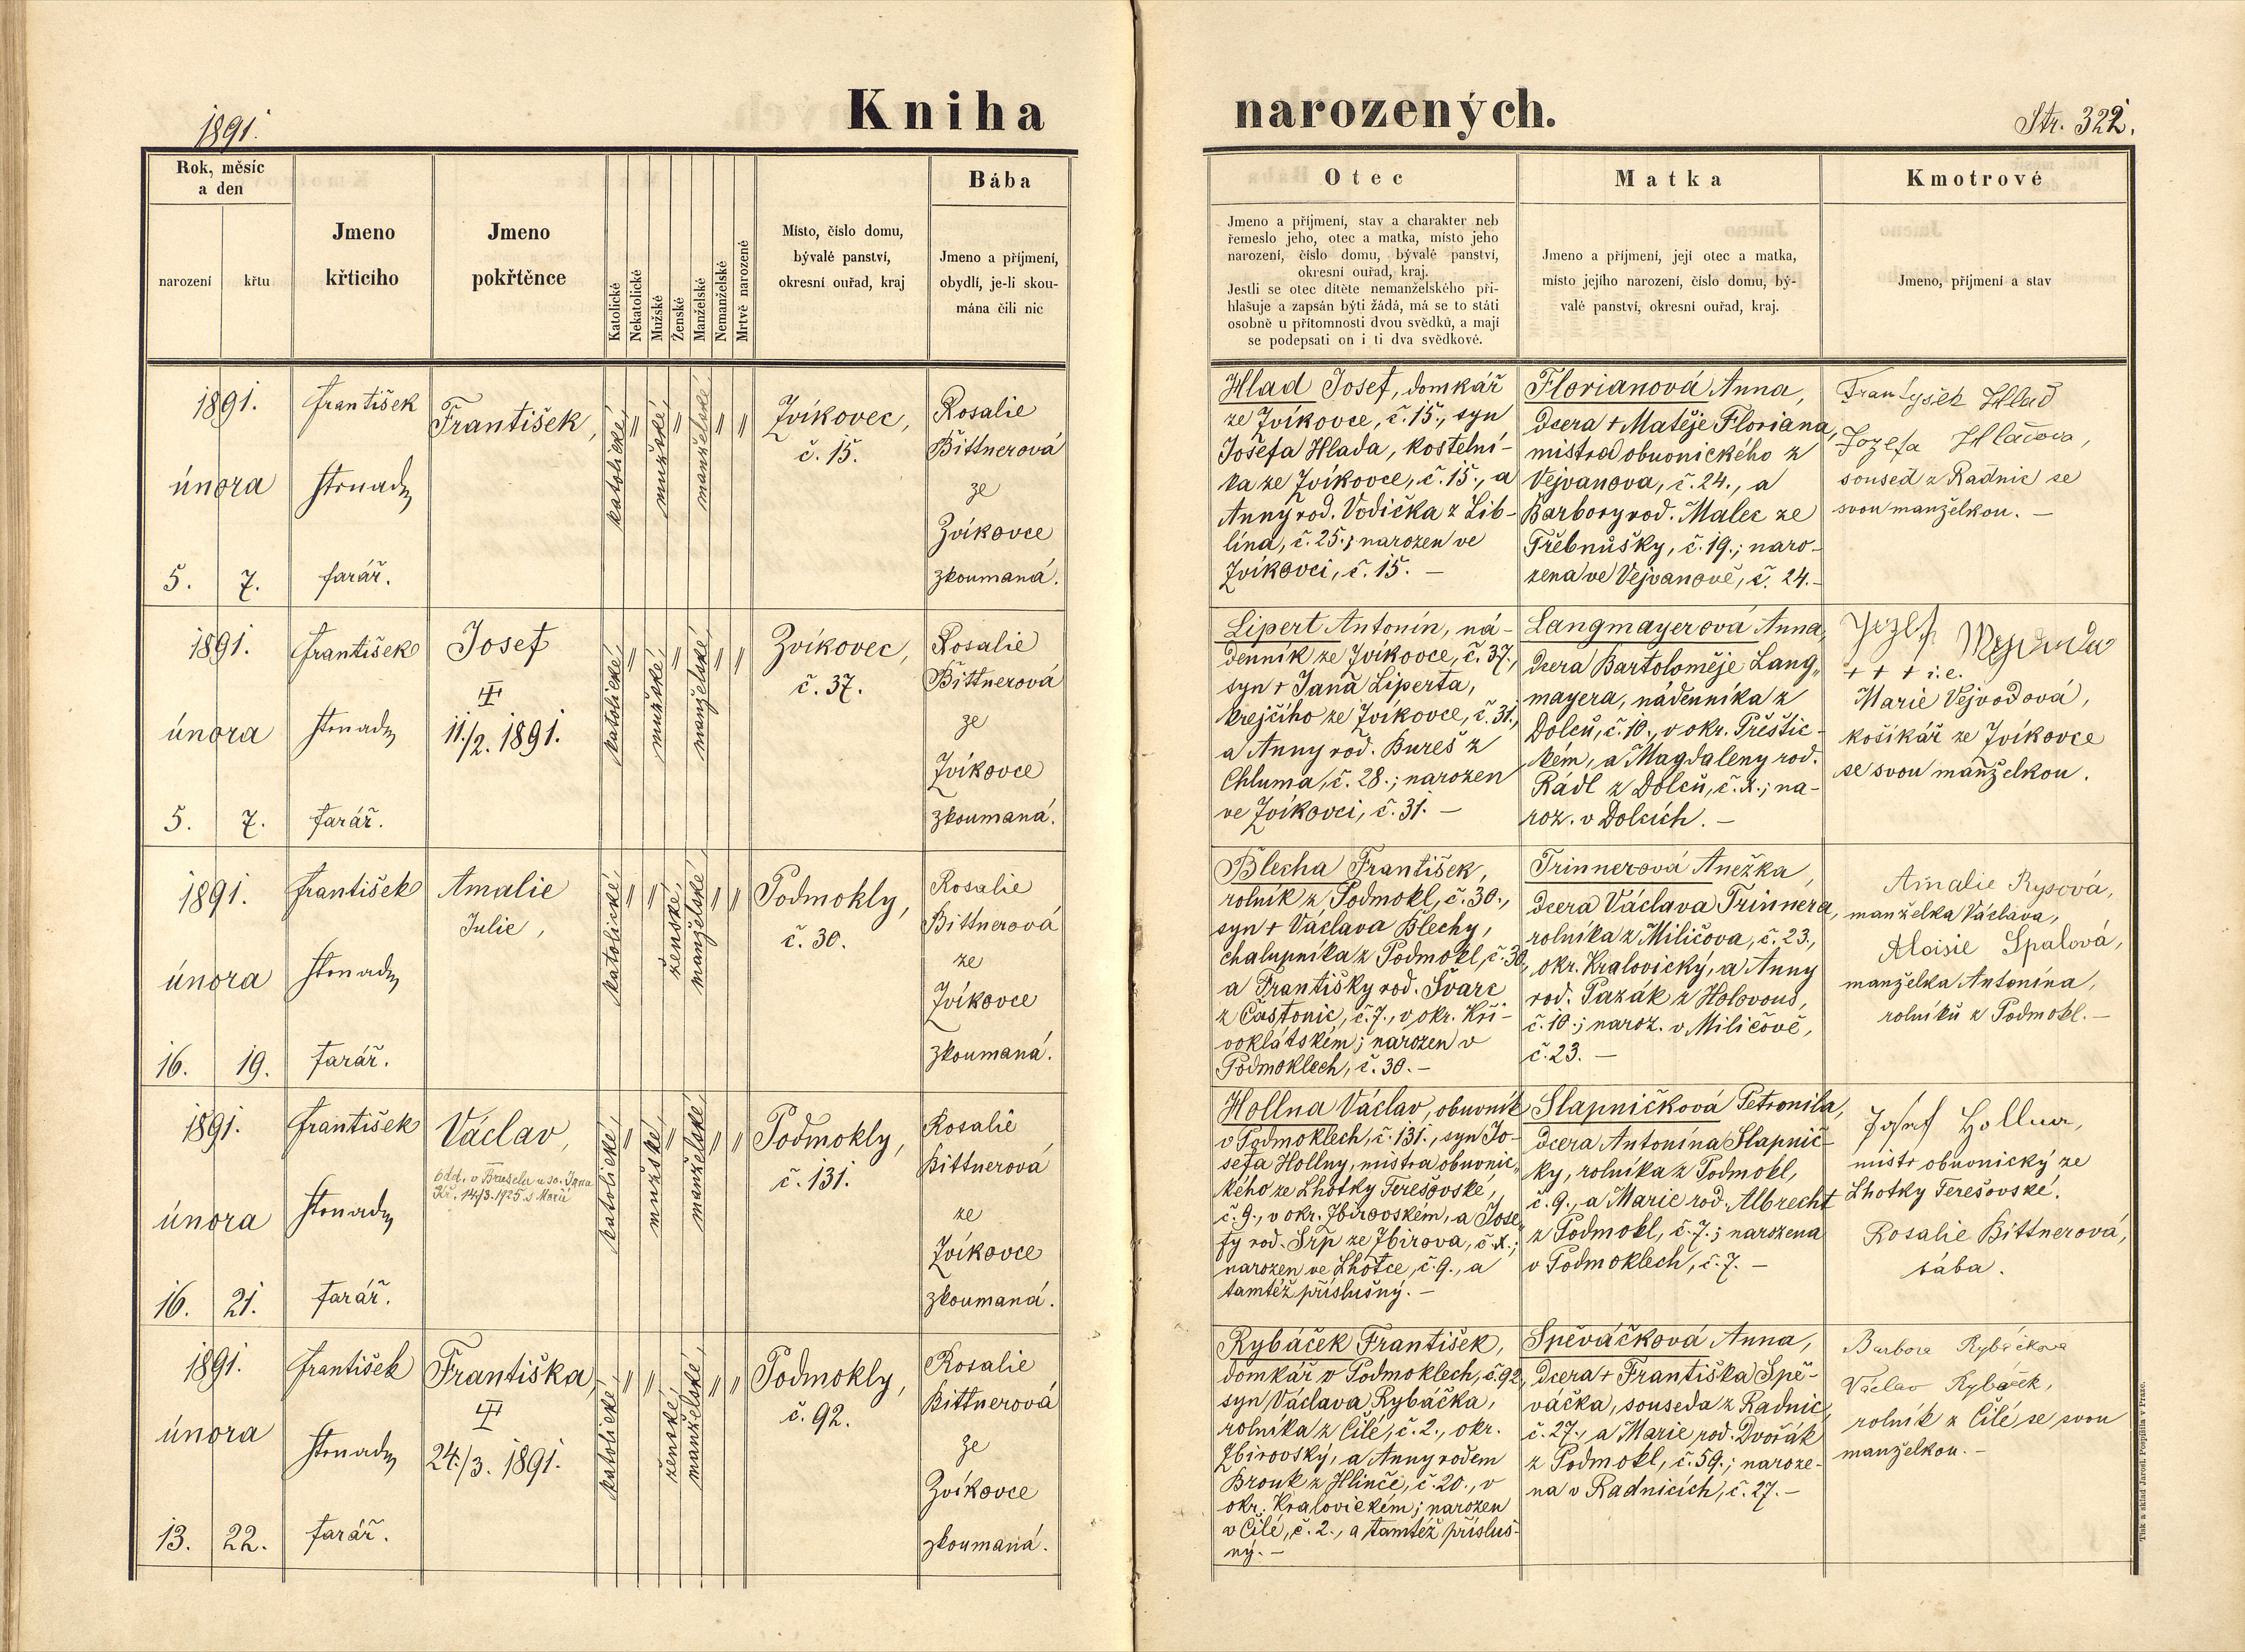 1891.
Kniha narozených.
Str. 322.
Rok, měsíc
a den
narození
křtu
Jmeno
křticího
Jmeno
pokřtěnce
Katolické
Nekatolické
Mužské
Ženské
Manželské
Nemanželské
Mrtvě narozené
Místo, číslo domu,
bývalé panství,
okresní ouřad, kraj
Bába
Jmeno a příjmení,
obydlí, je-li skou-
mána čili nic
Otec
Jmeno a příjmení, stav a charakter neb
řemeslo jeho, otec a matka, místo jeho
narození, číslo domu, bývalé panství,
okresní ouřad, kraj.
Jestli se otec dítěte nemanželského při-
hlašuje a zapsán býti žádá, má se to státi
osobně u přítomnosti dvou svědků, a mají
se podepsati on i ti dva svědkové.
Matka
Jmeno a příjmení, její otec a matka,
místo jejího narození, číslo domu, bý-
valé panství, okresní ouřad, kraj.
Kmotrové
Jmeno, příjmení a stav
1891.
února
5. 7.
František
farář.
František,
katolické,
"
mužské,
"
manželské
"
"
Zvíkovec,
č. 15.
Rosalie
Bittnerová
ze
Zvíkovce
zkoumaná.
Hlad Josef, domkář
ze Zvíkovce, č. 15., syn
Josefa Hlada, kostelní-
ka ze Zvíkovce, č. 15., a
Anny rod. Vodička z Lib-
lína, č. 25.; narozen ve
Zvíkovci, č. 15. —
Florianová Anna,
dcera + Matěje Floriana,
mistra obuvnického z
Vejvanova, č. 24., a
Barbory rod. Malec ze
Třebnůšky, č. 19.; naro-
zena ve Vejvanově, č. 24.—
Frantyšek Hlad
Jozefa Hladova,
soused z Radnic se
svou manželkou. —
1891.
února
5. 7.
František
farář.
Josef
11./2. 1891.
katolické,
"
mužské,
"
manželské,
"
"
Zvíkovec,
č. 37.
Rosalie
Bittnerová
ze
Zvíkovce
zkoumaná.
Lipert Antonín, ná-
denník ze Zvíkovce, č. 37.,
syn + Jana Liperta,
krejčího ze Zvíkovce, č. 31.,
a Anny rod. Bureš z
Chluma, č. 28.; narozen
ve Zvíkovci, č. 31. —
Langmayerová Anna,
dcera Bartoloměje Lang„
mayera, nádenníka z
Dolců, č. 10., v okr. Přeštic-
kém, a Magdaleny rod.
Rádl z Dolců, č. x.; na-
roz. v Dolcích. —
Jozef
+ + + i. e.
Marie Vejvodová,
košíkář ze Zvíkovce
se svou manželkou.
1891.
února
16. 19.
František
farář.
Amalie
Julie,
katolické,
"
"
ženské,
manželské,
"
"
Podmokly,
č. 30.
Rosalie
Bittnerová
ze
Zvíkovce
zkoumaná.
Blecha František,
rolník z Podmokl, č. 30.,
syn + Václava Blechy,
chalupníka z Podmokl, č. 30,
a Františky rod. Švarc
z Častonic, č. 7., v okr. Kři-
voklátském; narozen v
Podmoklech, č. 30. —
Trinnerová Anežka,
dcera Václava Trinnera,
rolníka z Miličova, č. 23.,
okr. Kralovický, a Anny
rod. Pazák z Holovous,
č. 10.; naroz. v Miličově,
č. 23. —
Amalie Rysová,
manželka Václava,
Aloisie Spalová,
manželka Antonína,
rolníků z Podmokl. —
1891.
února
16. 21.
František
farář.
Václav,
14/3. 1925 s Marií
katolické,
"
mužské,
"
manželské,
"
"
Podmokly,
č. 131.
Rosalie
Bittnerová
ze
Zvíkovce
zkoumaná.
Hollna Václav, obuvník
v Podmoklech, č. 131., syn Jo-
sefa Hollny, mistra obuvnic„
kého ze Lhotky Terešovské,
č. 9., v okr. Zbirovském, a Jose„
fy rod. Srp ze Zbirova, č. x.;
narozen ve Lhotce, č. 9., a
tamtéž příslušný. —
Slapničková Petronila,
dcera Antonína Slapnič-
ky, rolníka z Podmokl,
č. 9., a Marie rod. Albrecht
z Podmokl, č. 7.; narozena
v Podmoklech, č. 7. —
Josef Hollna,
mistr obuvnický ze
Lhotky Terešovské.
Rosalie Bittnerová,
bába.
1891.
února
13. 22.
František
farář.
Františka,
24./3. 1891.
katolické,
"
"
ženské,
manželské,
"
"
Podmokly,
č. 92.
Rosalie
Bittnerová
ze
Zvíkovce
zkoumaná.
Rybáček František,
domkář v Podmoklech, č. 92,
syn Václava Rybáčka,
rolníka z Čilé, č. 2., okr.
Zbirovský, a Anny rodem
Brouk z Hlinče, č. 20., v
okr. Kralovickém; narozen
v Čilé, č. 2., a tamtéž přísluš-
ný. —
Spěváčková Anna,
dcera + Františka Spě-
váčka, souseda z Radnic,
č. 27., a Marie rod. Dvořák
z Podmokl, č. 59.; naroze-
na v Radnicích, č. 27. —
Barbora Rybáčkova
Václav Rybáček,
rolník z Čilé se svou
manželkou. —
Tisk a sklad Jarosl. Pospíšila v Praze.